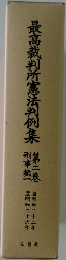 最高裁判所憲法判例集
第二巻
刑事篇一
自昭和二十二年
至昭和二十六年